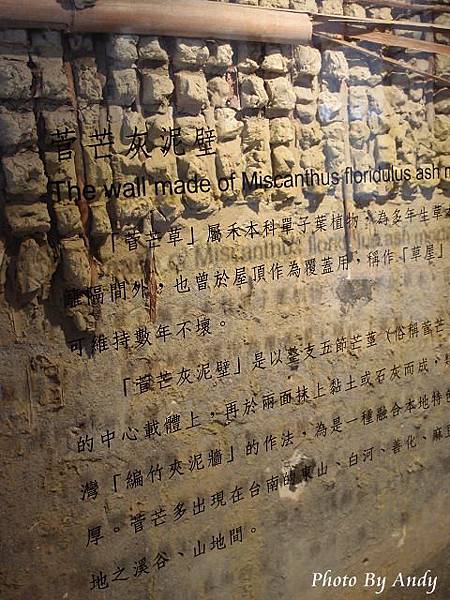 菅芒灰泥壁
The wall made of Miscanthus floridulus ash m
「菅芒草」屬禾本科單子葉植物，為多年生草本
離隔間外，也曾於屋頂作為覆蓋用，稱作「草屋」
可維持數年不壞。
「菅芒灰泥壁」是以整支五節芒莖（俗稱菅芒
的中心載體上，再於兩面抹上黏土或石灰而成，類
灣「編竹夾泥牆」的作法，為是一種融合本地特色
厚。菅芒多出現在台南的東山、白河、善化、麻豆
地之溪谷、山地間。
Photo By Andy